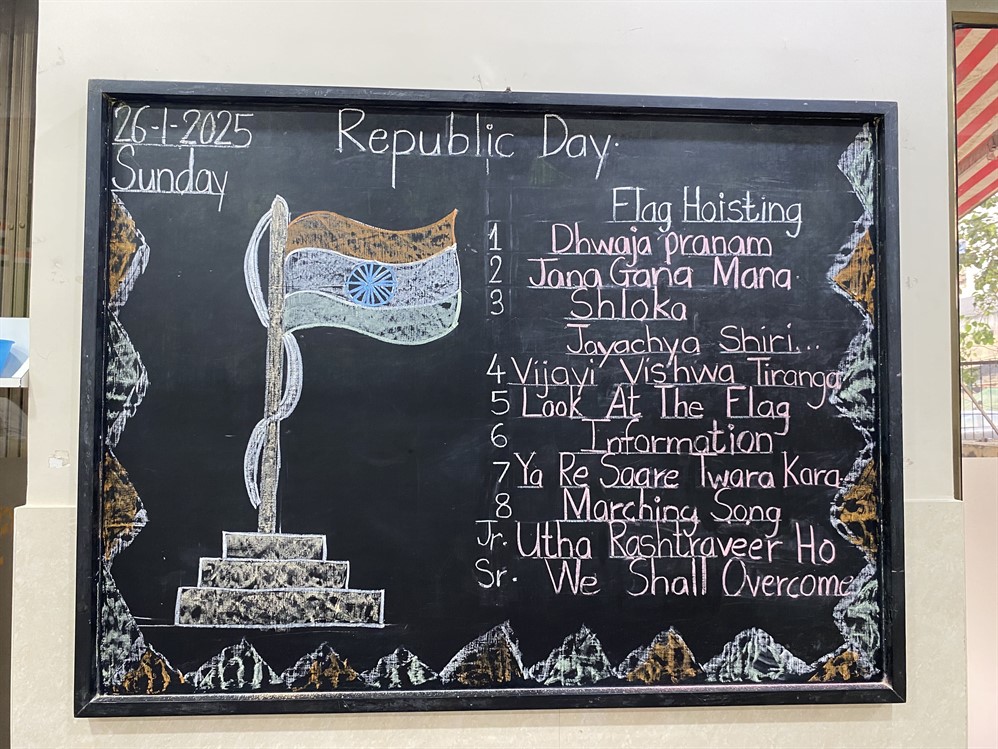 26-1-2025
Sunday
Republic Day.
Flag Hoisting
1 Dhwaja pranam
2 Jana Gana Mana.
3 Shloka
Jayachya Shiri...
4 Vijayi Vishwa Tiranga
5 Look At The Flag
6 Information
7 Ya Re Saare Twara Kara.
8 Marching Song
Jr. Utha Rashtraveer Ho
Sr. We Shall Overcome